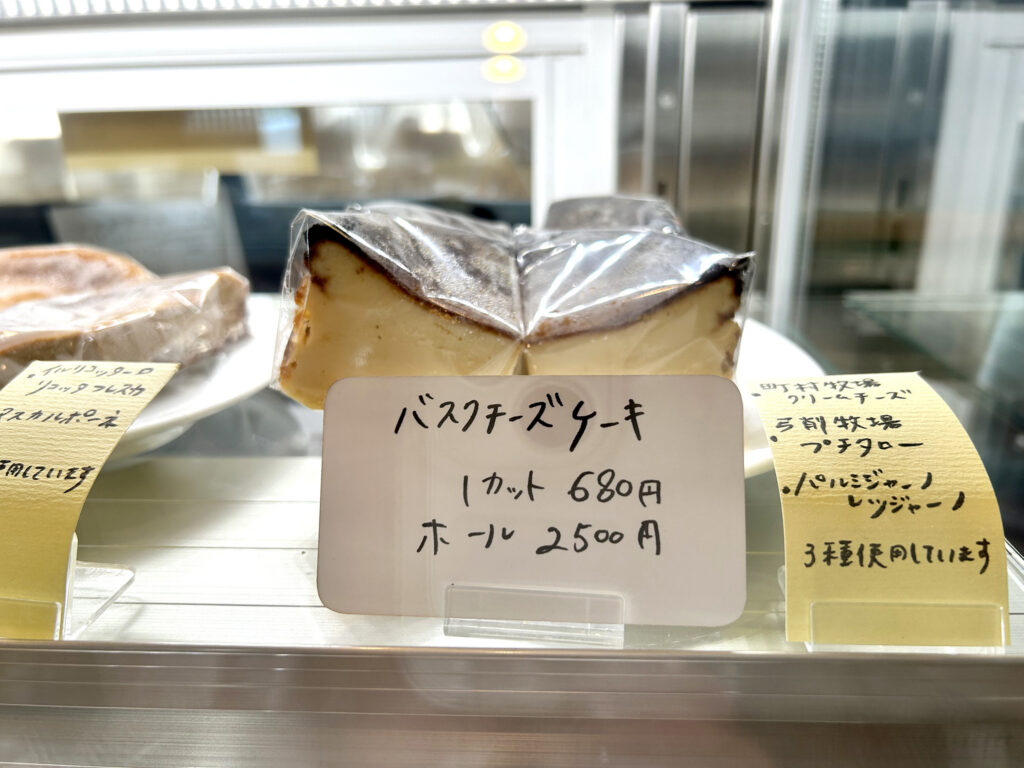 ・イルリコッターロ
リコッタフレスカ
マスカルポーネ
使用しています
バスクチーズケーキ
1カット 680円
ホール 2500円
・町村牧場
クリームチーズ
弓削牧場
・プチタロー
・パルミジャーノ
レッジャーノ
3種使用しています